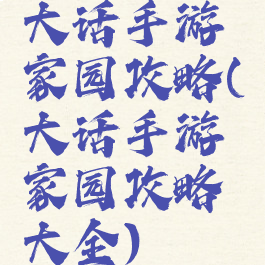 大话手游
家园攻略(
大话手游
家园攻略
大全)